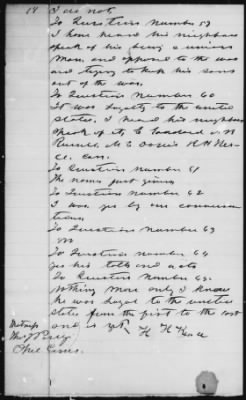 14 I do not
To Question Number 59
I have heard his neighbors
speak of his being a union
man, and opposed to the war
and trying to keep his sons
out of the war.
To Question Number 60
It was loyalty to the united
states. I heard his neighbors
speak of it,
To Question number 61
The names just given
To Question Number 62
I was yes by our conversa
tions
To Question Number 63
To Question number 64
yes his talk and acts
To Question Number 65
Nothing more only I know
he was loyal to the united
states from the first to the last
and is yet
Witness
H H